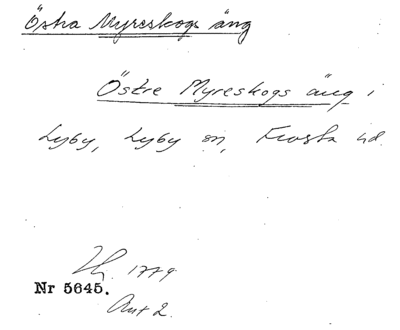 Östra Myreskogs äng
Östre Myreskogs äng i
Lyby, Lyby sn, Frosta hd.
1779
Nr 5645.
Akt 2.